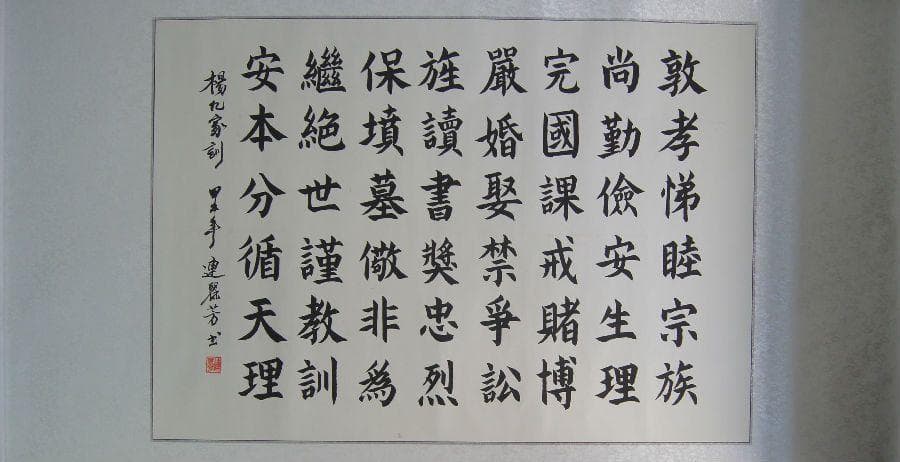 敦孝悌睦宗族
尚勤儉安生理
完國課戒賭博
嚴婚娶禁爭訟
旌讀書獎忠烈
保墳墓儆非為
繼絕世謹教訓
安本分循天理
楊氏家訓 甲午年 連翠芳书